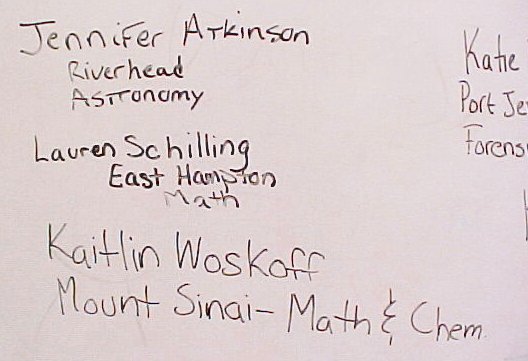 Jennifer Atkinson
Riverhead
Astronomy
Lauren Schilling
East Hampton
Math
Kaitlin Woskoff
Mount Sinai- Math & Chem
Katie
Port